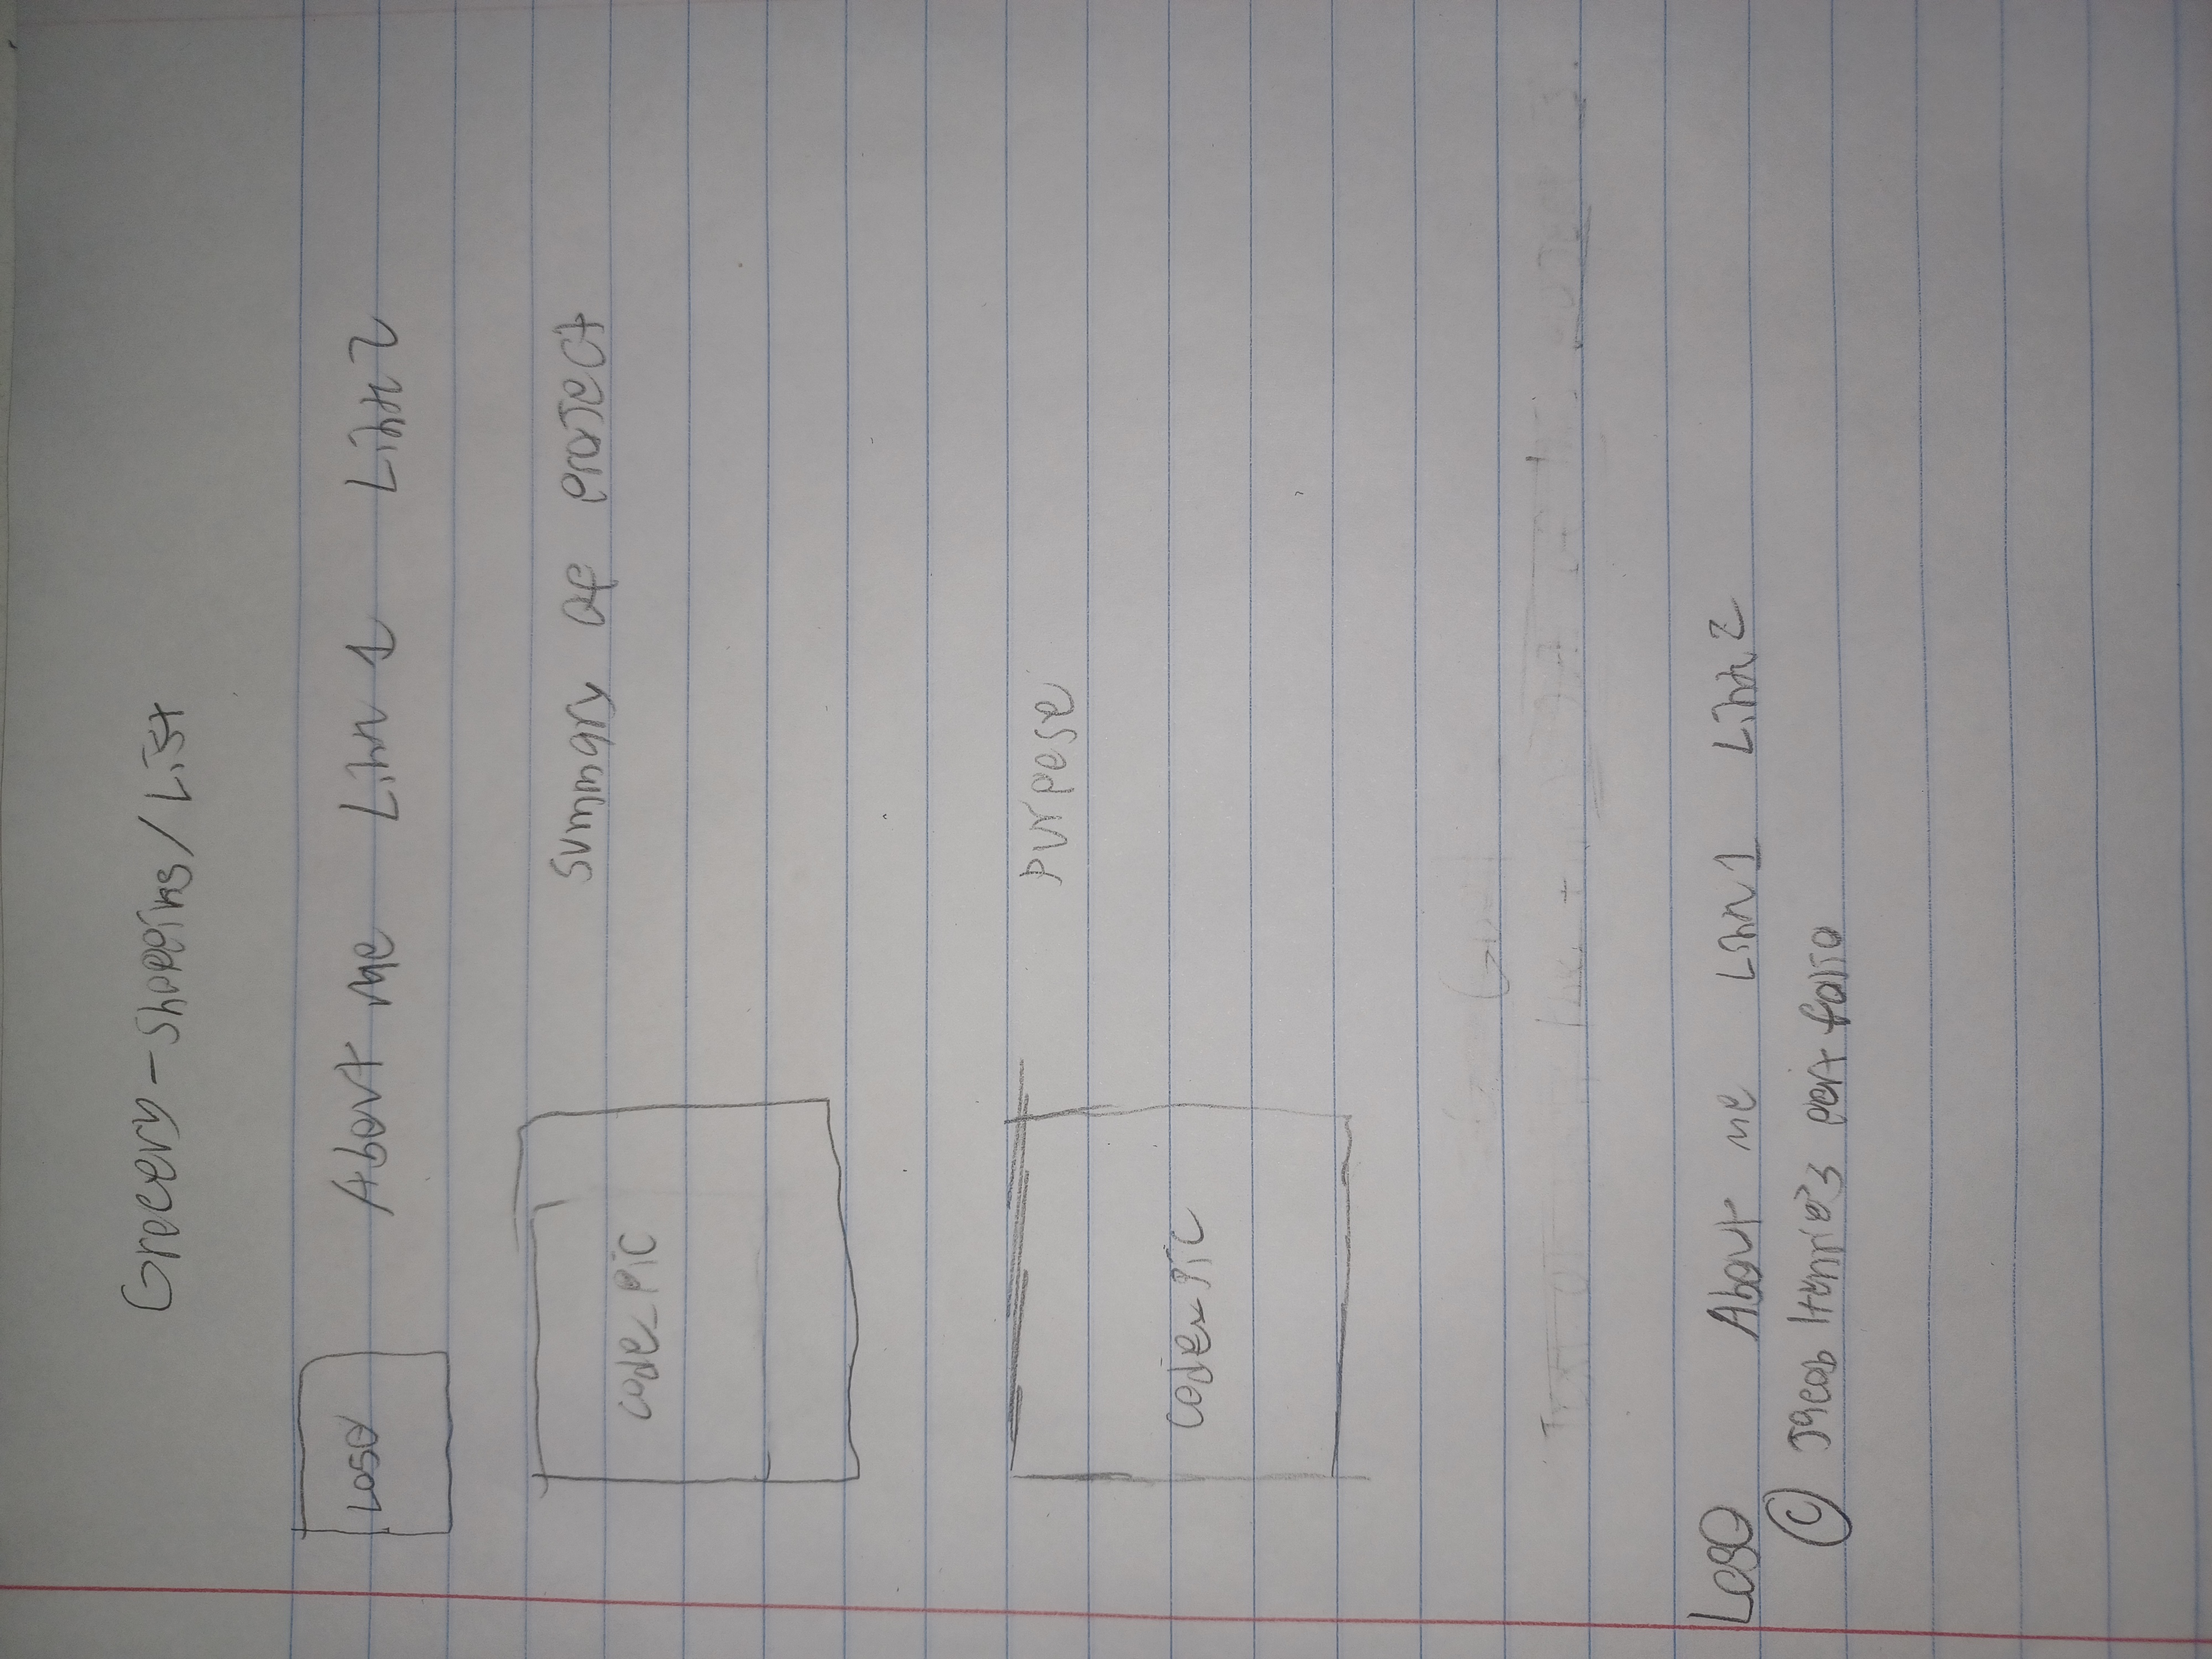 Grocery-shopping/List
Logo About me Link 1 Link 2
Summary of project
code_pic
Purpose
code_pic
Logo About me Link 1 Link 2
© Jacob Henrie's portfolio